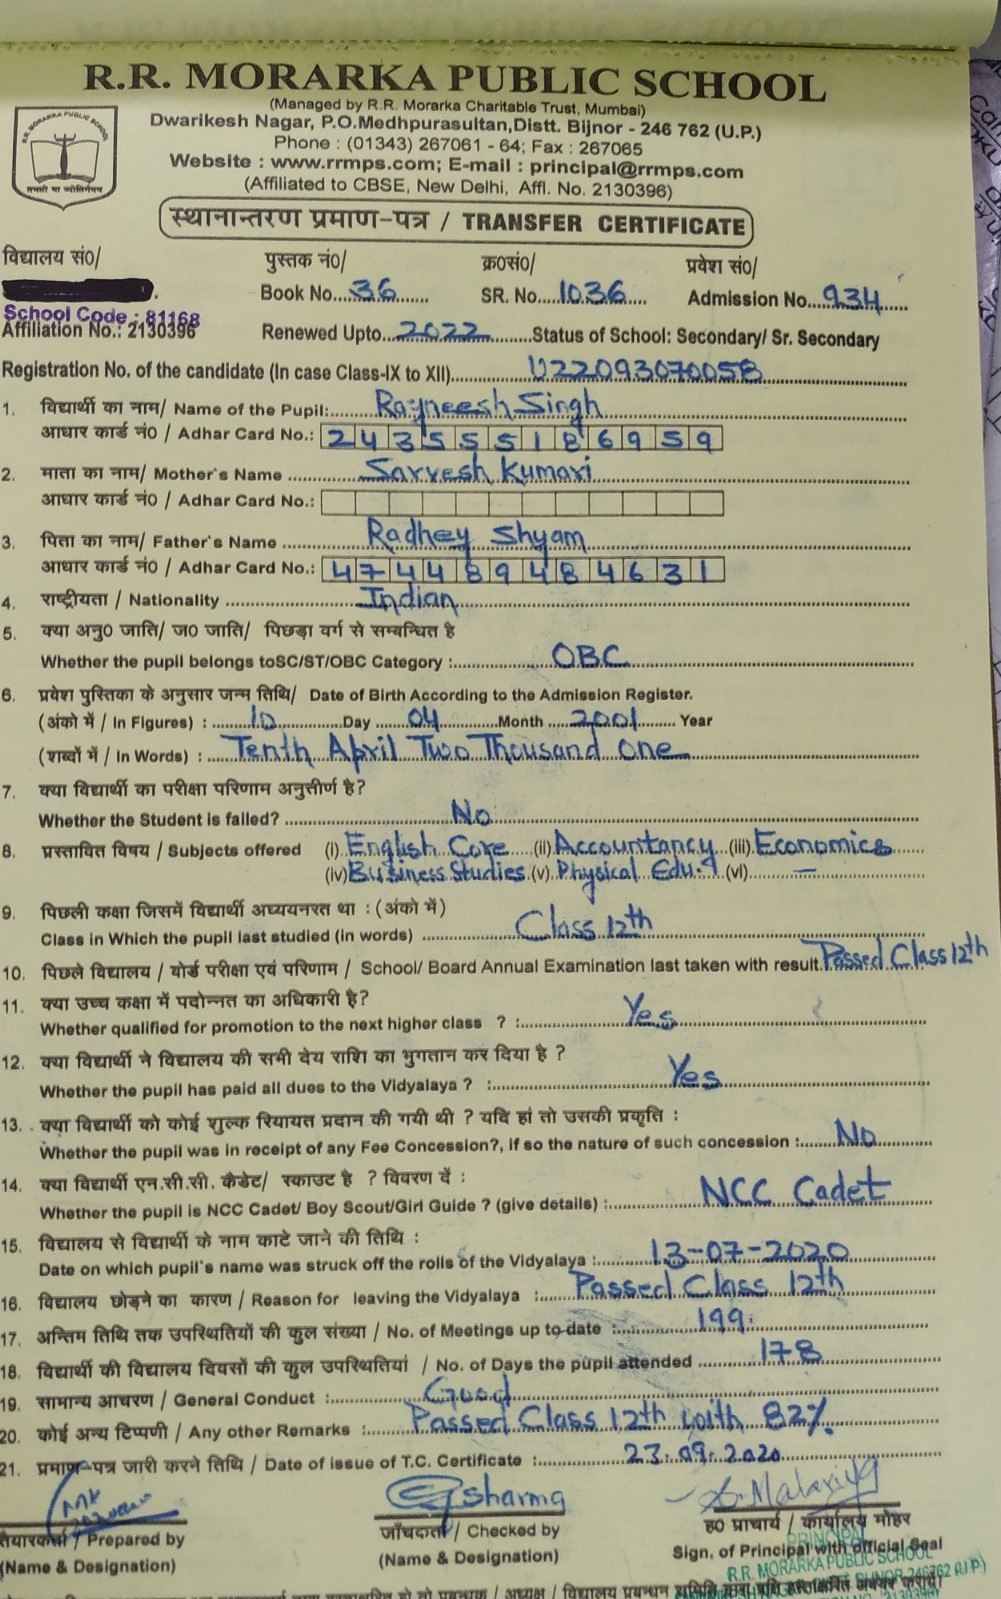 R.R. MORARKA PUBLIC SCHOOL
(Managed by R.R. Morarka Charitable Trust, Mumbai)
Dwarikesh Nagar, P.O.Medhpurasultan,Distt. Bijnor - 246 762 (U.P.)
Phone : (01343) 267061 - 64; Fax : 267065
Website : www.rrmps.com; E-mail : principal@rrmps.com
(Affiliated to CBSE, New Delhi, Affl. No. 2130396)
R.R. MORARKA PUBLIC SCHOOL
तमसो मा ज्योतिर्गमय
स्थानान्तरण प्रमाण-पत्र / TRANSFER CERTIFICATE
विद्यालय सं०/ पुस्तक नं०/ क्र०सं०/ प्रवेश सं०/
Book No....36....... SR. No....1036.... Admission No..934....
School Code : 81168
Affiliation No.: 2130396 Renewed Upto...2022.......Status of School: Secondary/ Sr. Secondary
Registration No. of the candidate (In case Class-IX to XII)..........U22093070058..........
1. विद्यार्थी का नाम/ Name of the Pupil:......Rajneesh Singh......
आधार कार्ड नं० / Adhar Card No.: 243555186959
2. माता का नाम/ Mother's Name ..........Sarvesh Kumari..........
आधार कार्ड नं० / Adhar Card No.:
3. पिता का नाम/ Father's Name ..........Radhey Shyam..........
आधार कार्ड नं० / Adhar Card No.: 474489484631
4. राष्ट्रीयता / Nationality ..........Indian..........
5. क्या अनु० जाति/ ज० जाति/ पिछड़ा वर्ग से सम्बन्धित है
Whether the pupil belongs toSC/ST/OBC Category :..........OBC..........
6. प्रवेश पुस्तिका के अनुसार जन्म तिथि/ Date of Birth According to the Admission Register.
(अंको में / In Figures) : ......10.......Day ....04.......Month ....2001...... Year
(शब्दों में / In Words) : ..Tenth April Two Thousand One..........
7. क्या विद्यार्थी का परीक्षा परिणाम अनुत्तीर्ण है?
Whether the Student is failed? ..........No..........
8. प्रस्तावित विषय / Subjects offered (i) English Core (ii) Accountancy (iii) Economics
(iv) Business Studies (v) Physical Edu. (vi) —
9. पिछली कक्षा जिसमें विद्यार्थी अध्ययनरत था : (अंको में)
Class in Which the pupil last studied (in words) ..........Class 12th..........
10. पिछले विद्यालय / बोर्ड परीक्षा एवं परिणाम / School/ Board Annual Examination last taken with result.Passed Class 12th
11. क्या उच्च कक्षा में पदोन्नत का अधिकारी है?
Whether qualified for promotion to the next higher class ? :..........Yes..........
12. क्या विद्यार्थी ने विद्यालय की सभी देय राशि का भुगतान कर दिया है ?
Whether the pupil has paid all dues to the Vidyalaya ? :..........Yes..........
13. क्या विद्यार्थी को कोई शुल्क रियायत प्रदान की गयी थी ? यदि हां तो उसकी प्रकृति :
Whether the pupil was in receipt of any Fee Concession?, if so the nature of such concession :......No......
14. क्या विद्यार्थी एन.सी.सी. कैडेट/ स्काउट है ? विवरण दें :
Whether the pupil is NCC Cadet/ Boy Scout/Girl Guide ? (give details) :..........NCC Cadet..........
15. विद्यालय से विद्यार्थी के नाम काटे जाने की तिथि :
Date on which pupil's name was struck off the rolls of the Vidyalaya :......13-07-2020......
16. विद्यालय छोड़ने का कारण / Reason for leaving the Vidyalaya :....Passed Class 12th......
17. अन्तिम तिथि तक उपस्थितियों की कुल संख्या / No. of Meetings up to date :..........199..........
18. विद्यार्थी की विद्यालय दिवसों की कुल उपस्थितियां / No. of Days the pupil attended ..........178..........
19. सामान्य आचरण / General Conduct :..........Good..........
20. कोई अन्य टिप्पणी / Any other Remarks :......Passed Class 12th with 82%
21. प्रमाण-पत्र जारी करने तिथि / Date of issue of T.C. Certificate :..........23.09.2020..........
Gsharma
तैयारकर्ता / Prepared by जाँचदाता / Checked by ह० प्राचार्य / कार्यालय मोहर
(Name & Designation) (Name & Designation) Sign. of Principal with official Seal
PRINCIPAL
R.R. MORARKA PUBLIC SCHOOL
BIJNOR-246762 (U.P.)